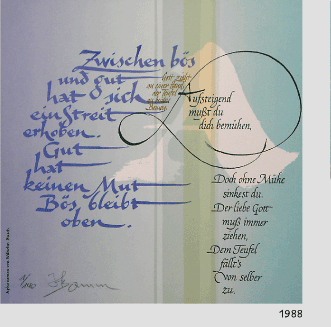 Zwischen bös
und gut
hat sich
ein Streit
erhoben.
Gut
hat
keinen Mut
Bös bleibt
oben.
Gott zieht
an einer Hand,
der Teufel
an beiden
Beinen.
Aufsteigend
mußt du
dich bemühen,
Doch ohne Mühe
sinkest du.
Der liebe Gott
muß immer
ziehen,
Dem Teufel
fällt's
von selber
zu.
Aphorismen von Wilhelm Busch
1988